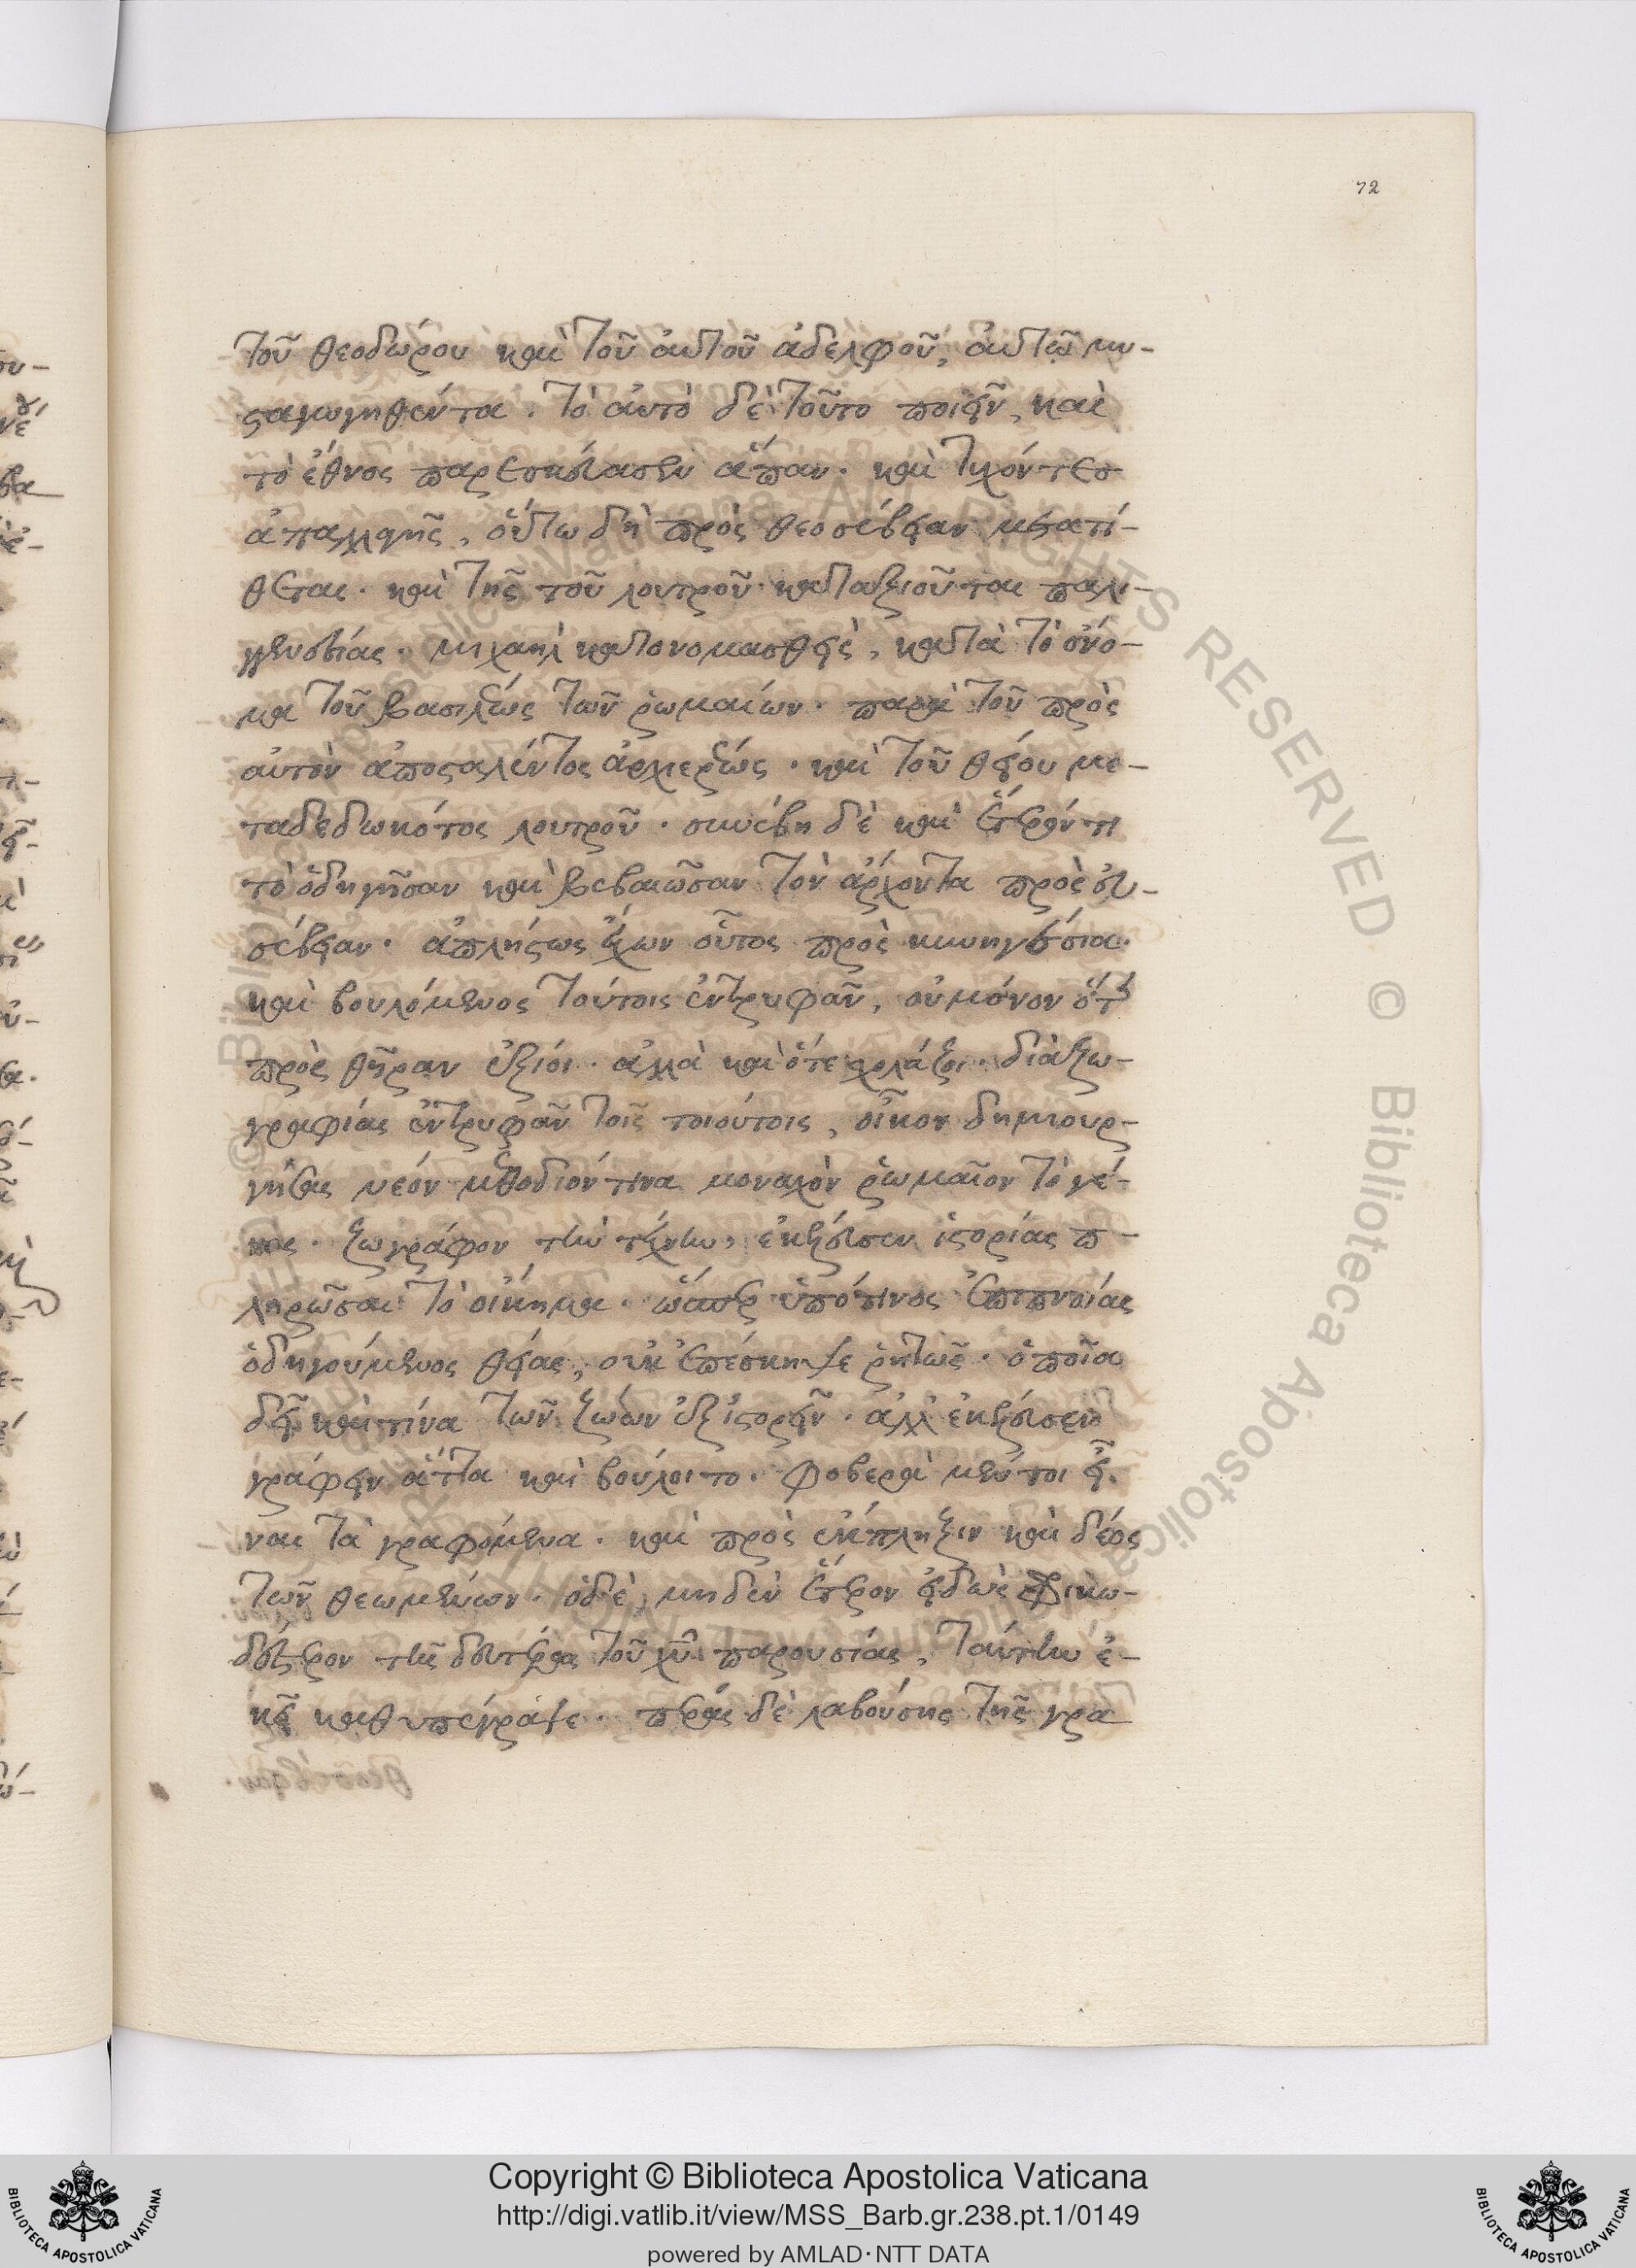 72
τοῦ θεοδώρου καὶ τοῦ αὐτοῦ ἀδελφοῦ, αὐτῶ μυ-
σταγωγηθέντα. τὸ αὐτὸ δὲ τοῦτο ποιεῖν, καὶ
τὸ ἔθνος παρεσκεύασεν ἅπαν. καὶ τυχόντες
ἀπαλλαγῆς, οὕτω δὴ πρὸς θεοσέβειαν μετατί-
θεται. καὶ τῆς τοῦ λουτροῦ καταξιοῦται παλι-
γγενεσίας. μιχαὴλ κατονομασθεὶς, κατὰ τὸ ὄνο-
μα τοῦ βασιλέως τῶν ῥωμαίων. παρὰ τοῦ πρὸς
αὐτὸν ἀποσταλέντος ἀρχιερέως. καὶ τοῦ θείου με-
ταδεδωκότος λουτροῦ. συνέβη δὲ καὶ ἕτερόν τι
τὸ ὁδηγῆσαν καὶ βεβαιῶσαν τὸν ἄρχοντα πρὸς εὐ-
σέβειαν. ἀπλήστως ἔχων οὗτος πρὸς κυνηγέσια.
καὶ βουλόμενος τούτοις ἐντρυφᾶν, οὐ μόνον ὅτε
πρὸς θῆραν ἐξίοι. ἀλλὰ καὶ ὅτε σχολάζοι. διὰ ζω-
γραφίας ἐντρυφᾶν τοῖς τοιούτοις, οἶκον δημιουρ-
γήσας νέον μεθόδιόν τινα μοναχὸν ῥωμαῖον τὸ γέ-
νος. ζωγράφον τὴν τέχνην, ἐκέλευσεν ἱστορίας π-
ληρῶσαι τὸ οἴκημα. ὥσπερ ὑπό τινος ἐπιπνοίας
ὁδηγούμενος θείας, οὐκ ἐπέσκηψε ῥητῶς. ὁποῖα
δεῖ καὶ τίνα τῶν ζώων ἐξιστορεῖν. ἀλλ' ἐκέλευσεν
γράφειν ἅττα καὶ βούλοιτο. φοβερὰ μέντοι εἶ-
ναι τὰ γραφόμενα. καὶ πρὸς ἔκπληξιν καὶ δέος
τῶν θεωμένων. ὁ δὲ, μηδὲν ἕτερον εἰδὼς φρικω-
δέστερον τῆς δευτέρας τοῦ χυ παρουσίας, ταύτην ἐ-
κεῖ καθυπέγραψε. πέρας δὲ λαβούσης τῆς γρα
Copyright © Biblioteca Apostolica Vaticana
http://digi.vatlib.it/view/MSS_Barb.gr.238.pt.1/0149
powered by AMLAD·NTT DATA